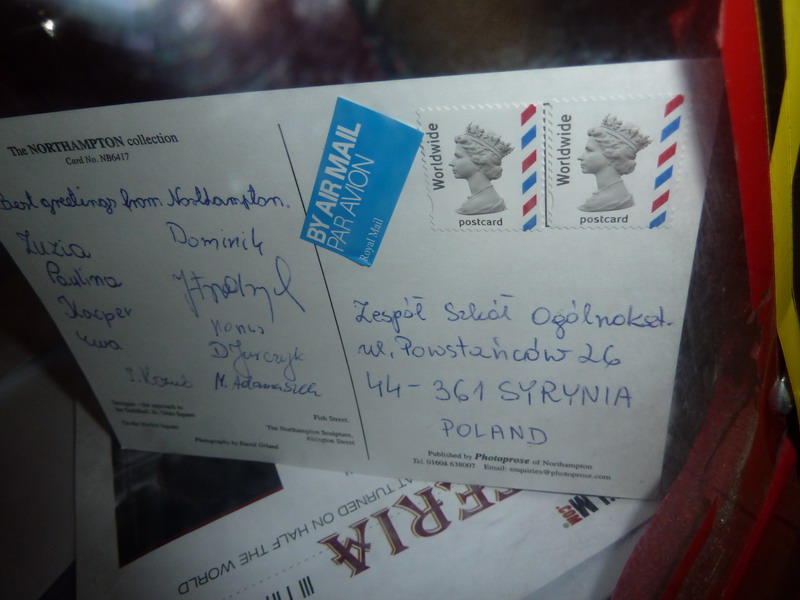 The NORTHAMPTON collection
Card No. NB6417
Best greetings from Northampton.
Zuzia
Dominik
Paulina
Kacper
Ewa
D Jurczyk
M. Adamaszek
Fish Street.
The Northampton Sculpture,
Abington Street
Photography by David Orland
BY AIR MAIL
PAR AVION
Royal Mail
Worldwide
postcard
Worldwide
postcard
Zespół Szkół Ogólnokszt.
ul. Powstańców 26
44-361 SYRYNIA
POLAND
Published by Photoprose of Northampton
Tel. 01604 638007 Email: enquiries@photoprose.com
AT TURNED ON HALF THE WORLD
ERIA